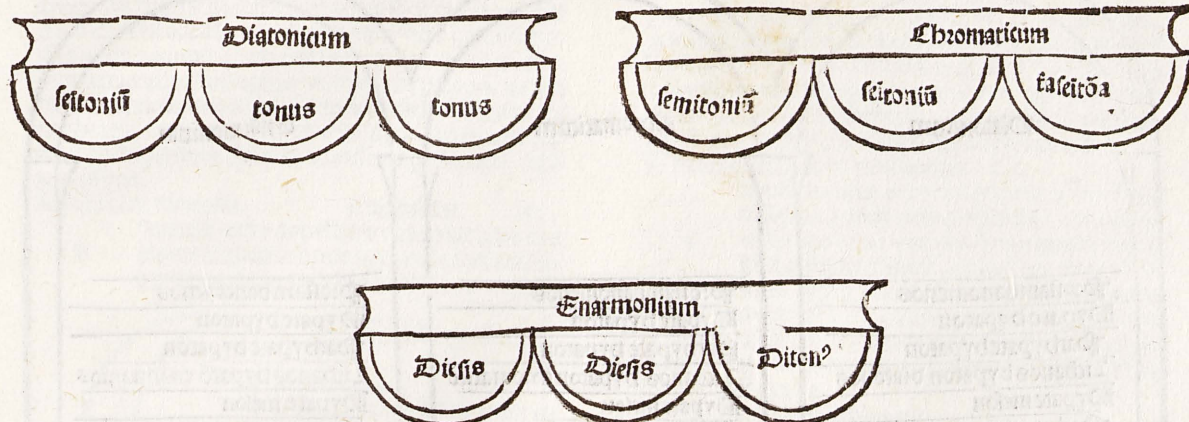 Diatonicum
ſeitoniū tonus tonus
Chromaticum
ſemitoniū ſeitoniū t̄aſeitōa
Enarmonium
Dieſis Dieſis Diton⁹